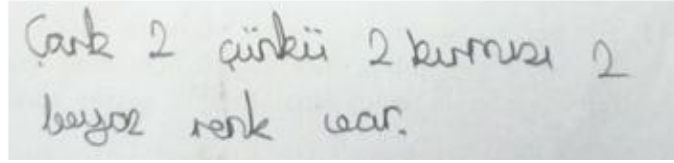 Çark 2 çünkü 2 kırmızı 2
beyaz renk var.